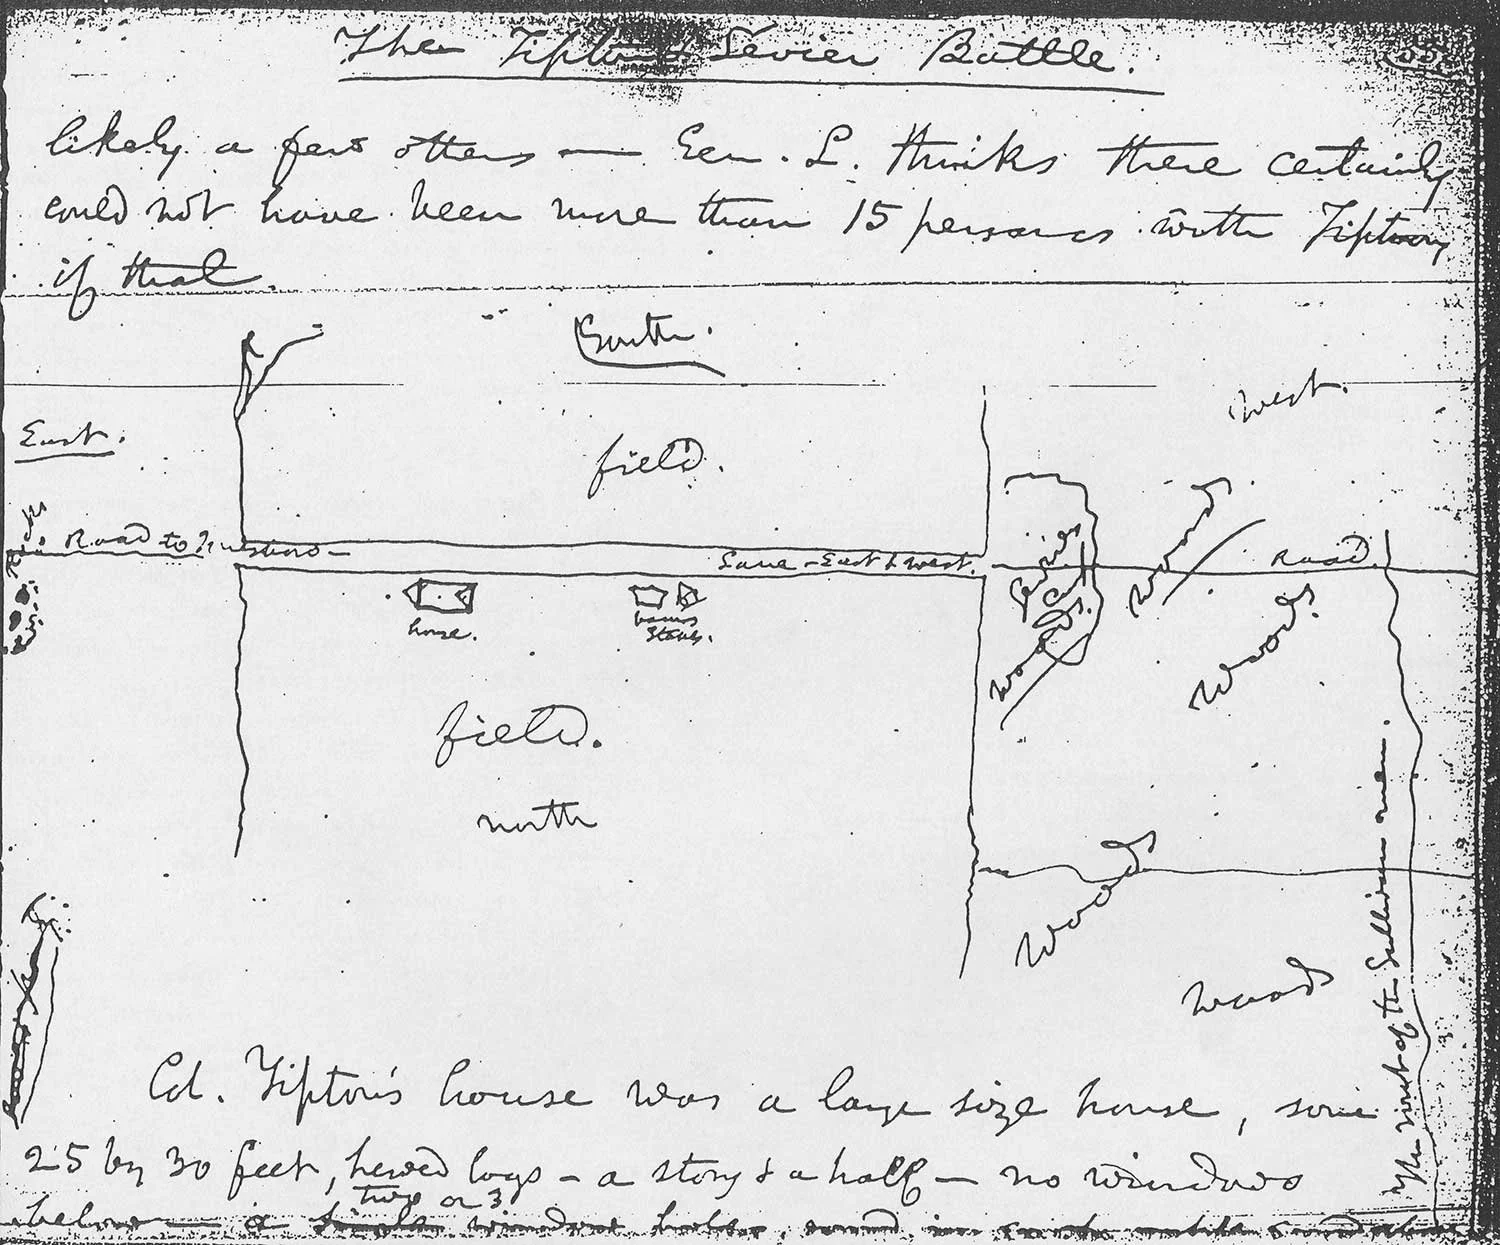 The Tipton & Sevier Battle.
likely a few others — Gen. L. thinks there certainly
could not have been more than 15 persons with Tipton
if that.
South.
west.
East.
field.
Road to
Lane - East & West.
Road.
house.
barns
Stables.
Woods.
Woods
Woods
field.
north
Woods
Woods
The rout of the Sullivan men.
Col. Tipton's house was a large size house, some
25 by 30 feet, hewed logs - a story & a half - no windows
two or 3
below - a single window